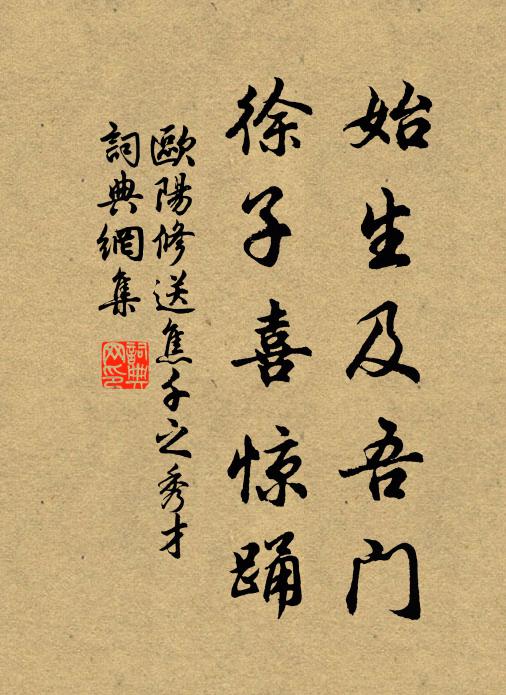 始生及吾门
徐子喜惊踊
歐陽修送焦千之秀才
詞典網集
詞典网印